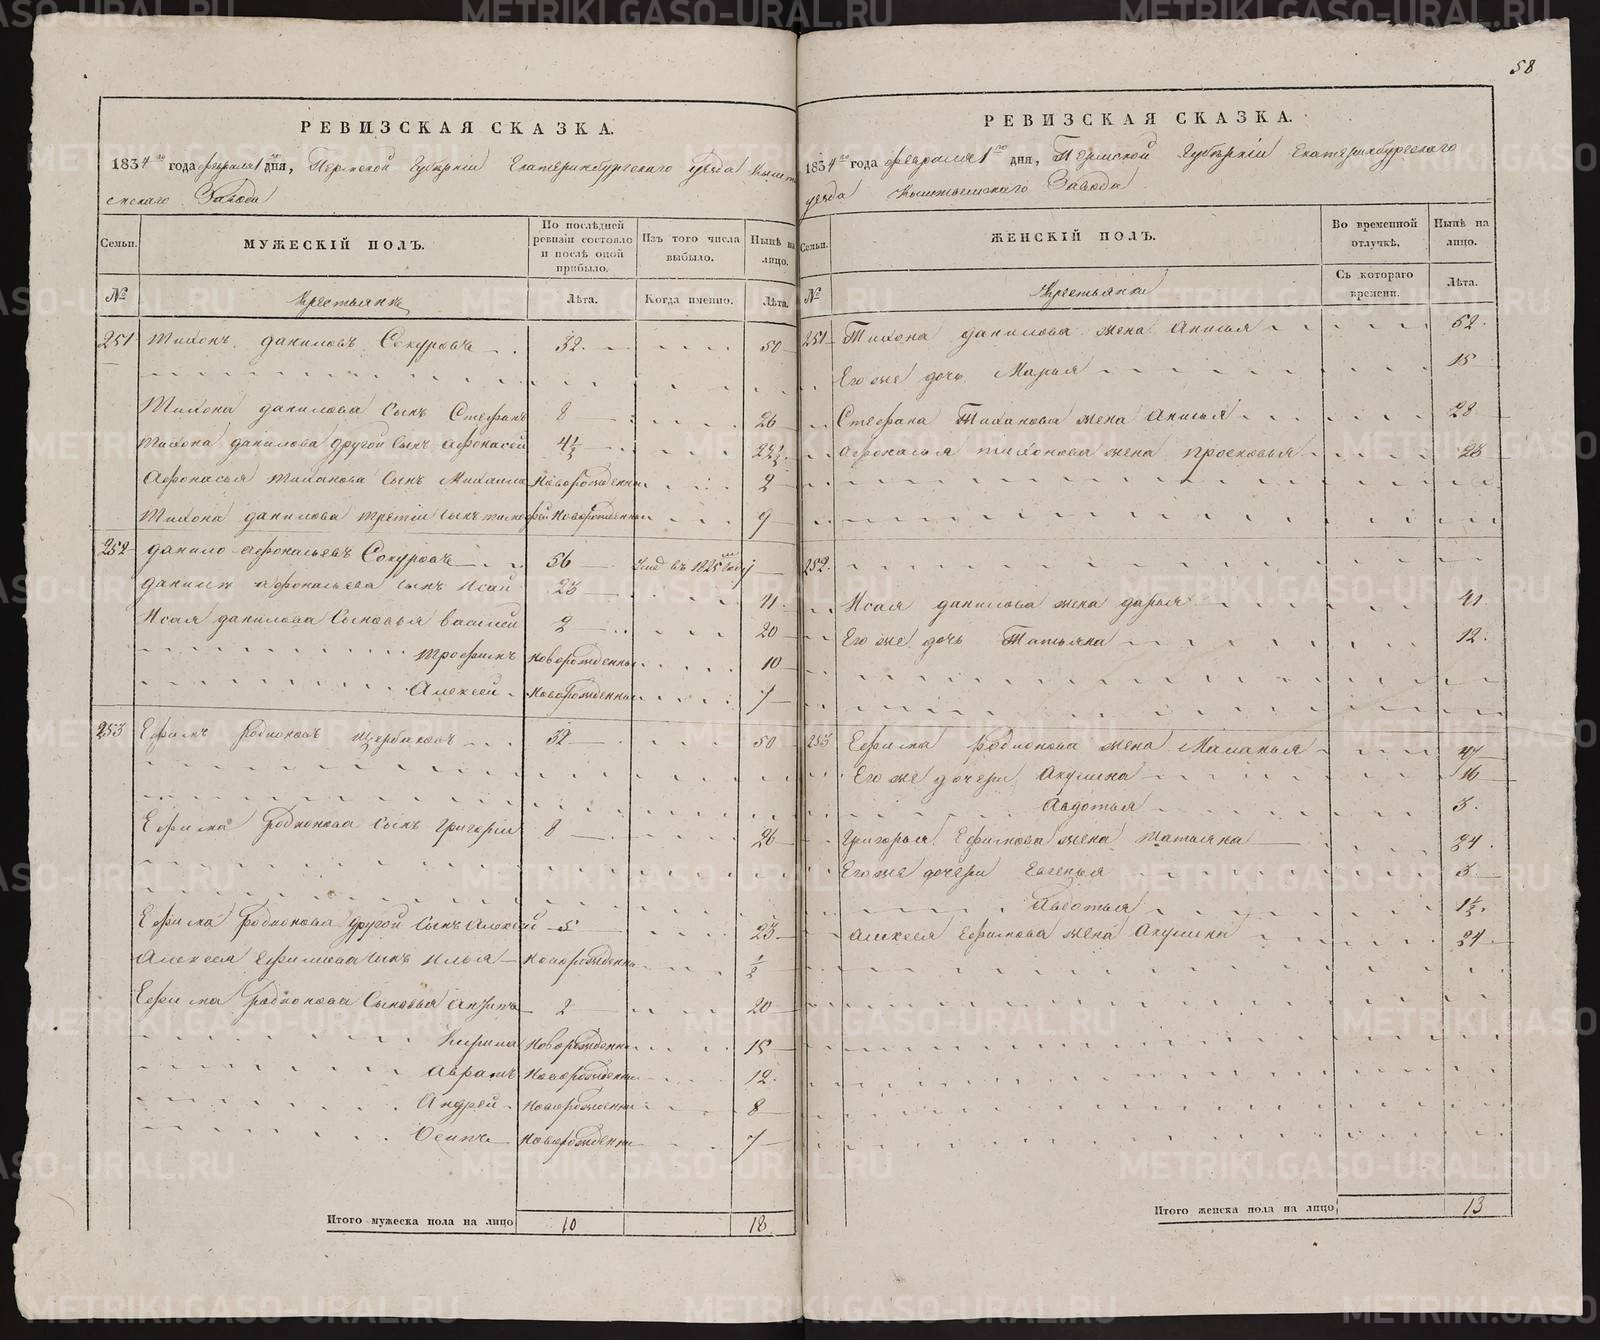 58
РЕВИЗСКАЯ СКАЗКА.
1834го года февраля 1 дня, Пермской Губернiи Екатеринбургского уезда Кышт
емского Завода
Семьи.
МУЖЕСКIЙ ПОЛЪ.
По послѣдней ревизiи состояло и послѣ оной прибыло.
Изъ того числа выбыло.
Нынѣ на лицо.
№
Крестьянѣ
Лѣта.
Когда именно.
Лѣта.
251 Тихонъ даниловъ Сокуровъ 32. 50
Тихона данилова Сынъ Стефанъ 8 26
Тихона данилова другой Сынъ Афонасей 4½ 22½
Афонасья тиханова Сынъ Михаила Новорожденны 2
Тихона данилова третiи Сынъ Новорожденны 9
252 данило Афонасьевъ Сокуровъ 56 Умѣ въ 1825 году
данилы Афонасьева Сынъ Исай 23 41.
Исая данилова Сыновья василей 2 20
трофимъ новорожденны 10
Алексей новорожденны 7
253 Ефимъ родионовъ щербаковъ 32 50
Ефима родионова Сынъ григорiи 8 26
Ефима родионова другой Сынъ Алексей 5 23
Алексея Ефимова Сынъ илья Новорожденны ½
Ефима родионова Сыновья Антипъ 2 20
Кирила Новорожденны 15
Аврамъ Новорожденны 12.
Андрей Новорожденны 8
Осипъ Новорожденны 7
Итого мужеска пола на лицо 10 18
РЕВИЗСКАЯ СКАЗКА.
1834го года февраля 1го дня, Пермской Губернiи Екатеринбургского
уезда Кыштымского Завода
Семьи.
ЖЕНСКIЙ ПОЛЪ.
Во временной отлучкѣ.
Нынѣ на лицо.
№
Крестьянки
Съ котораго времени.
Лѣта.
251 Тихона данилова жена Анисья 52.
Его же дочь Марья 15
Стефана Тиханова жена Анисья 28
Афонасья тихонова жена просковья 23
252.
Исая данилова жена дарья 41
Его же дочь Татьяна 12.
253 Ефима родионова жена Маланья 47
Его же дочери Акулина 16
Авдотья 3.
григорья Ефимова жена татьяна 24.
Его же дочери Евгенья 3
Авдотья 1½.
Алексея Ефимова жена Акулина 24
Итого женска пола на лицо 13
METRIKI.GASO-URAL.RU